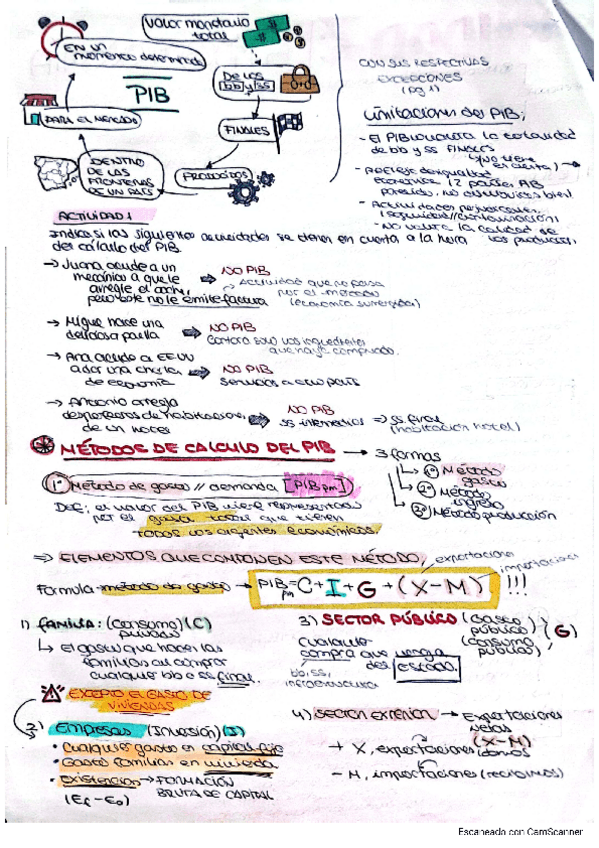 Valor monetario
total
EN UN
momento determinado
PIB
DE LOS
bb y ss
PARA EL MERCADO
FINALES
DENTRO
DE LAS
FRONTERAS
DE UN PAÍS
PRODUCIDOS
CON SUS RESPECTIVAS
EXCEPCIONES
(pg 1)
Limitaciones del PIB:
- El PIB no cuenta la totalidad
de bb y ss FINALES
- Refleja desigualdad
económica
- NO valora la calidad de
los productos.
ACTIVIDAD 1
Indica si las siguientes actividades se tienen en cuenta a la hora
del cálculo del PIB.
→ Juana acude a un
mecánico a que le
arregle el coche,
pero este no le emite factura
NO PIB
Actividad que no pasa
por el mercado
(economía sumergida)
→ Miguel hace una
deliciosa paella
NO PIB
Contara solo los ingredientes
que haya comprado.
→ Ana acude a EEUU
a dar una charla
de economía
NO PIB
Servicios a otro país
→ Antonio arregla
desperfectos de habitaciones
de un hotel
NO PIB
ss intermedios ⇒ ss final
(habitación hotel)
MÉTODOS DE CALCULO DEL PIB → 3 formas
1º Método gasto
2º Método ingreso
3º Método producción
1º Método de gasto // demanda [PIB pm]
DEF: el valor del PIB viene representado
por el gasto total que tienen
TODOS los agentes económicos.
⇒ ELEMENTOS QUE COMPONEN ESTE MÉTODO.
exportaciones
importaciones
Formula método de gasto → PIB pm = C + I + G + (X - M) !!!
1) FAMILIA: (consumo) (C)
privado
↳ El gasto que hacen las
familias al comprar
cualquier bb o ss final.
EXCEPTO EL GASTO DE
VIVIENDAS
2) Empresas (Inversión) (I)
• Cualquier gasto en capital fijo
• Gasto familias en vivienda
• Existencias → FORMACIÓN
BRUTA DE CAPITAL
(Ef - Eo)
3) SECTOR PÚBLICO (Gasto
público)
(consumo
público) (G)
Cualquier
compra que venga
del estado.
bb, ss,
infraestructura
4) SECTOR EXTERIOR → Exportaciones
netas
(X-M)
+ X, exportaciones (damos)
- M, importaciones (recibimos)
Escaneado con CamScanner